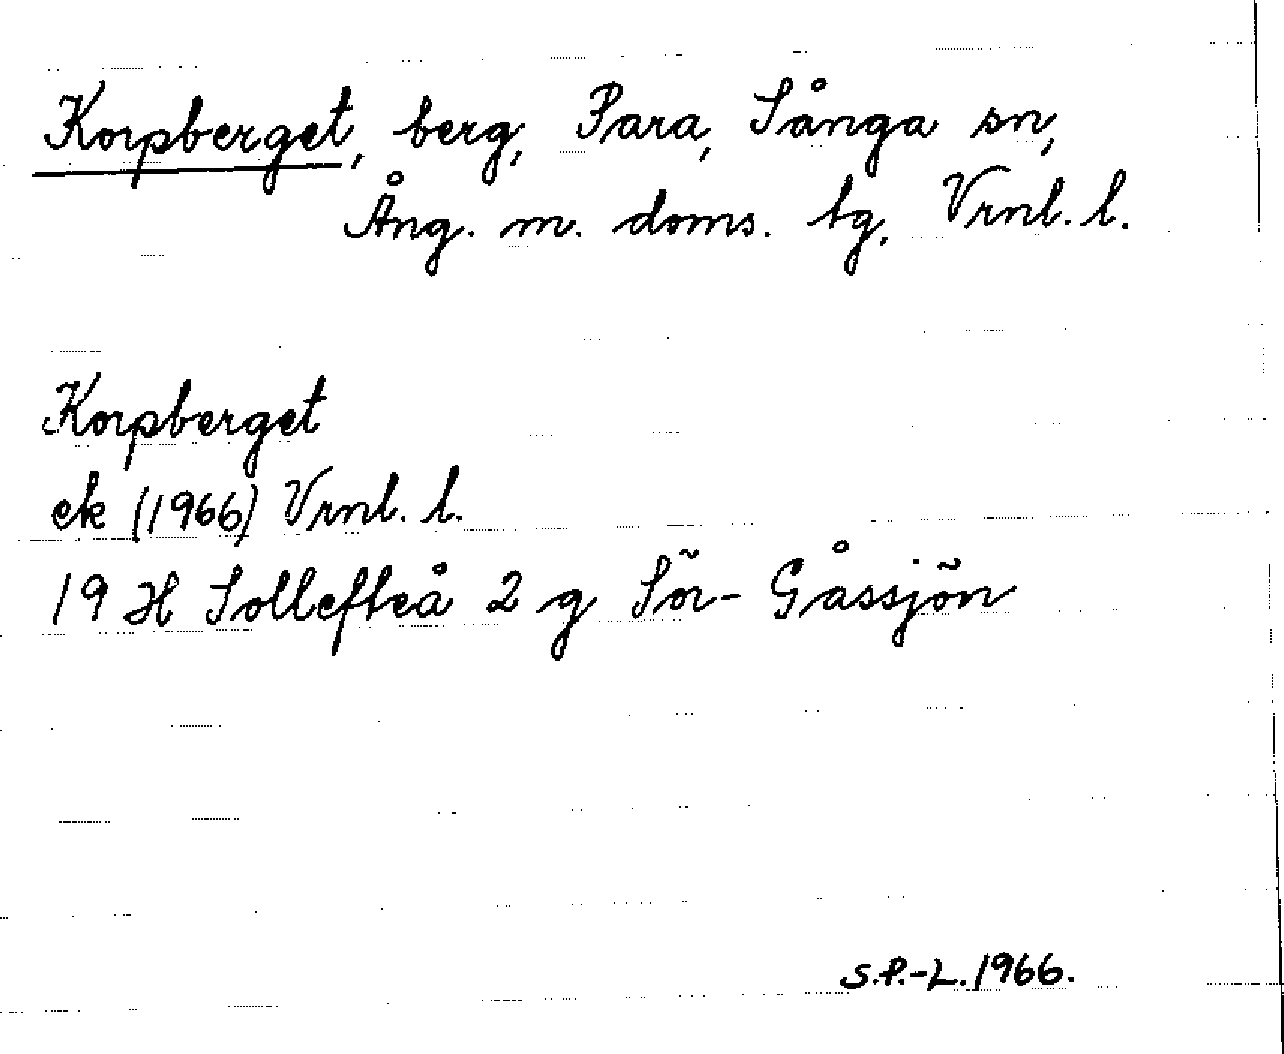 Korpberget, berg, Para, Sånga sn,
Ång. m. doms. tg, Vrnl. l.
Korpberget
ek (1966) Vrnl. l.
19 H Sollefteå 2 g Sör-Gåssjön
S.P.-L. 1966.